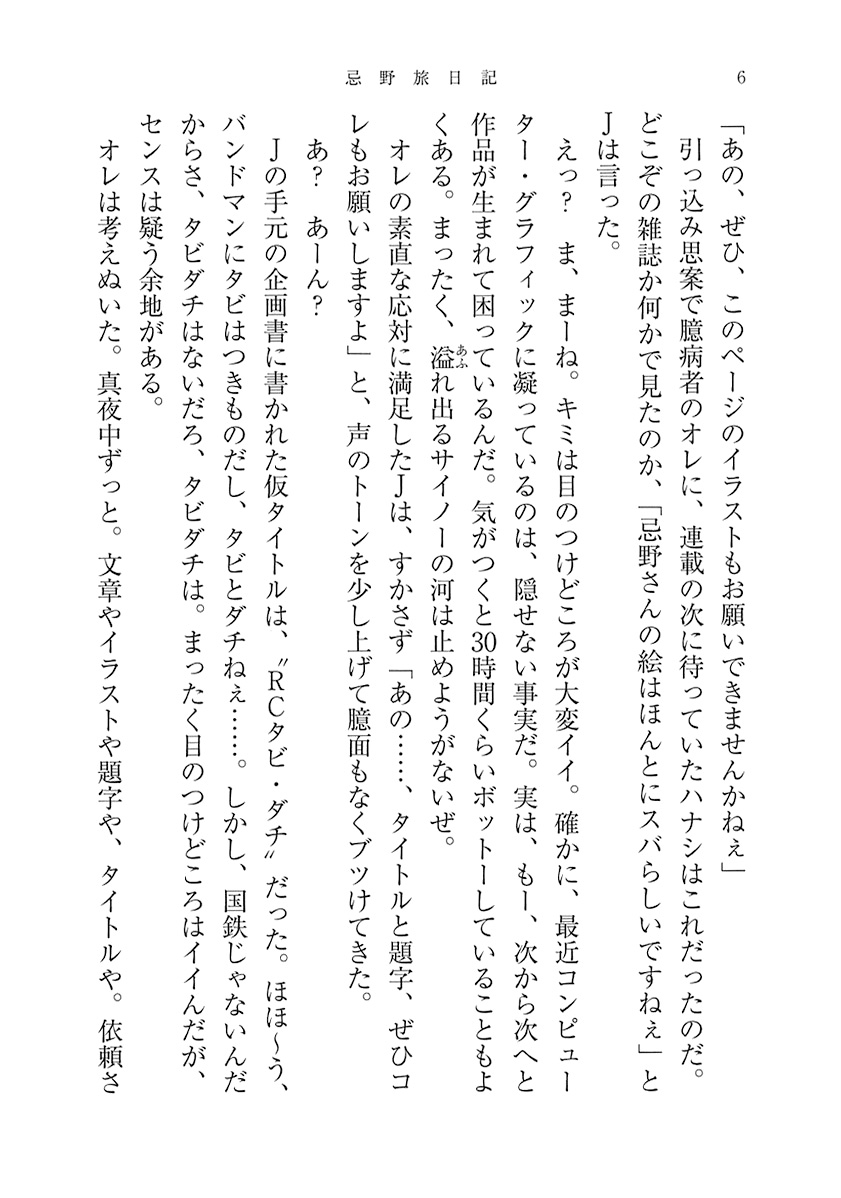 忌野旅日記
6
「あの、ぜひ、このページのイラストもお願いできませんかねぇ」
引っ込み思案で臆病者のオレに、連載の次に待っていたハナシはこれだったのだ。
どこぞの雑誌か何かで見たのか、「忌野さんの絵はほんとにスバらしいですねぇ」と
Jは言った。
えっ？　ま、まーね。キミは目のつけどころが大変イイ。確かに、最近コンピュー
ター・グラフィックに凝っているのは、隠せない事実だ。実は、もー、次から次へと
作品が生まれて困っているんだ。気がつくと30時間くらいボットーしていることもよ
くある。まったく、溢あふれ出るサイノーの河は止めようがないぜ。
オレの素直な応対に満足したJは、すかさず「あの……、タイトルと題字、ぜひコ
レもお願いしますよ」と、声のトーンを少し上げて臆面もなくブツけてきた。
あ？　あーん？
Jの手元の企画書に書かれた仮タイトルは、〝RCタビ・ダチ〟だった。ほほ～う、
バンドマンにタビはつきものだし、タビとダチねぇ……。しかし、国鉄じゃないんだ
からさ、タビダチはないだろ、タビダチは。まったく目のつけどころはイイんだが、
センスは疑う余地がある。
オレは考えぬいた。真夜中ずっと。文章やイラストや題字や、タイトルや。依頼さ